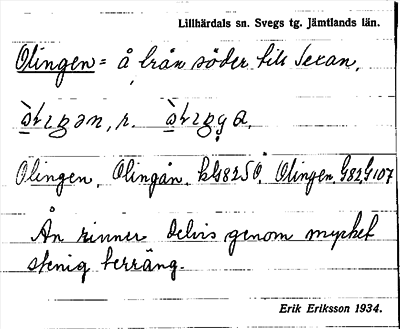 Lillhärdals sn. Svegs tg. Jämtlands län.
Olingen = å från söder till Sexan.
Olingen, Olingån. kG82SO, Olingen G82,G107
Ån rinner delvis genom mycket
stenig terräng.
Erik Eriksson 1934.